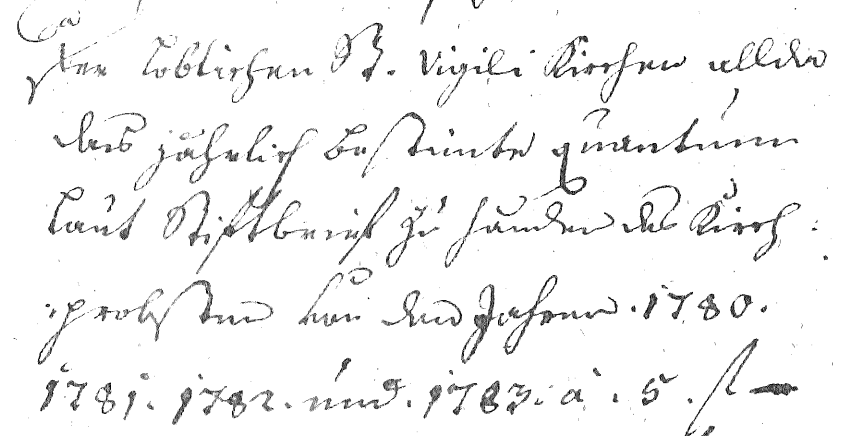 der loblichen St. Vigili Kirchen allda
das jährlich bestimte quantum
laut Stiftbrief zu handen des Kirch:
:probsten von den Jahren. 1780.
1781. 1782. und. 1783. a. 5. f